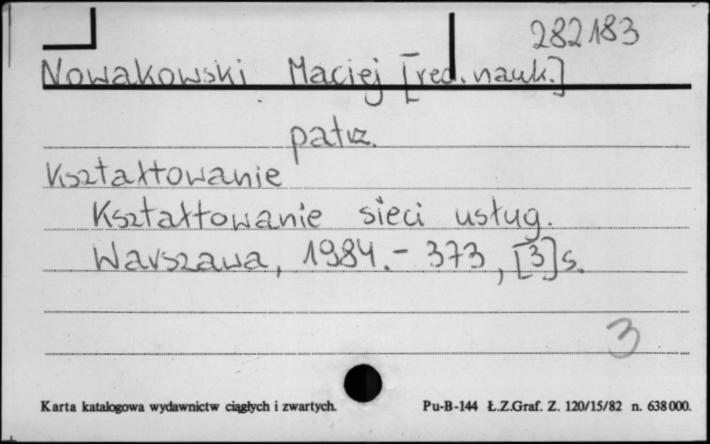 282183
Nowakowski Maciej [red. nauk.]
patrz.
Kształtowanie
Kształtowanie sieci usług.
Warszawa, 1984.- 373, [3]s.
3
Karta katalogowa wydawnictw ciągłych i zwartych. Pu-B-144 Ł.Z.Graf. Z. 120/15/82 n. 638000.